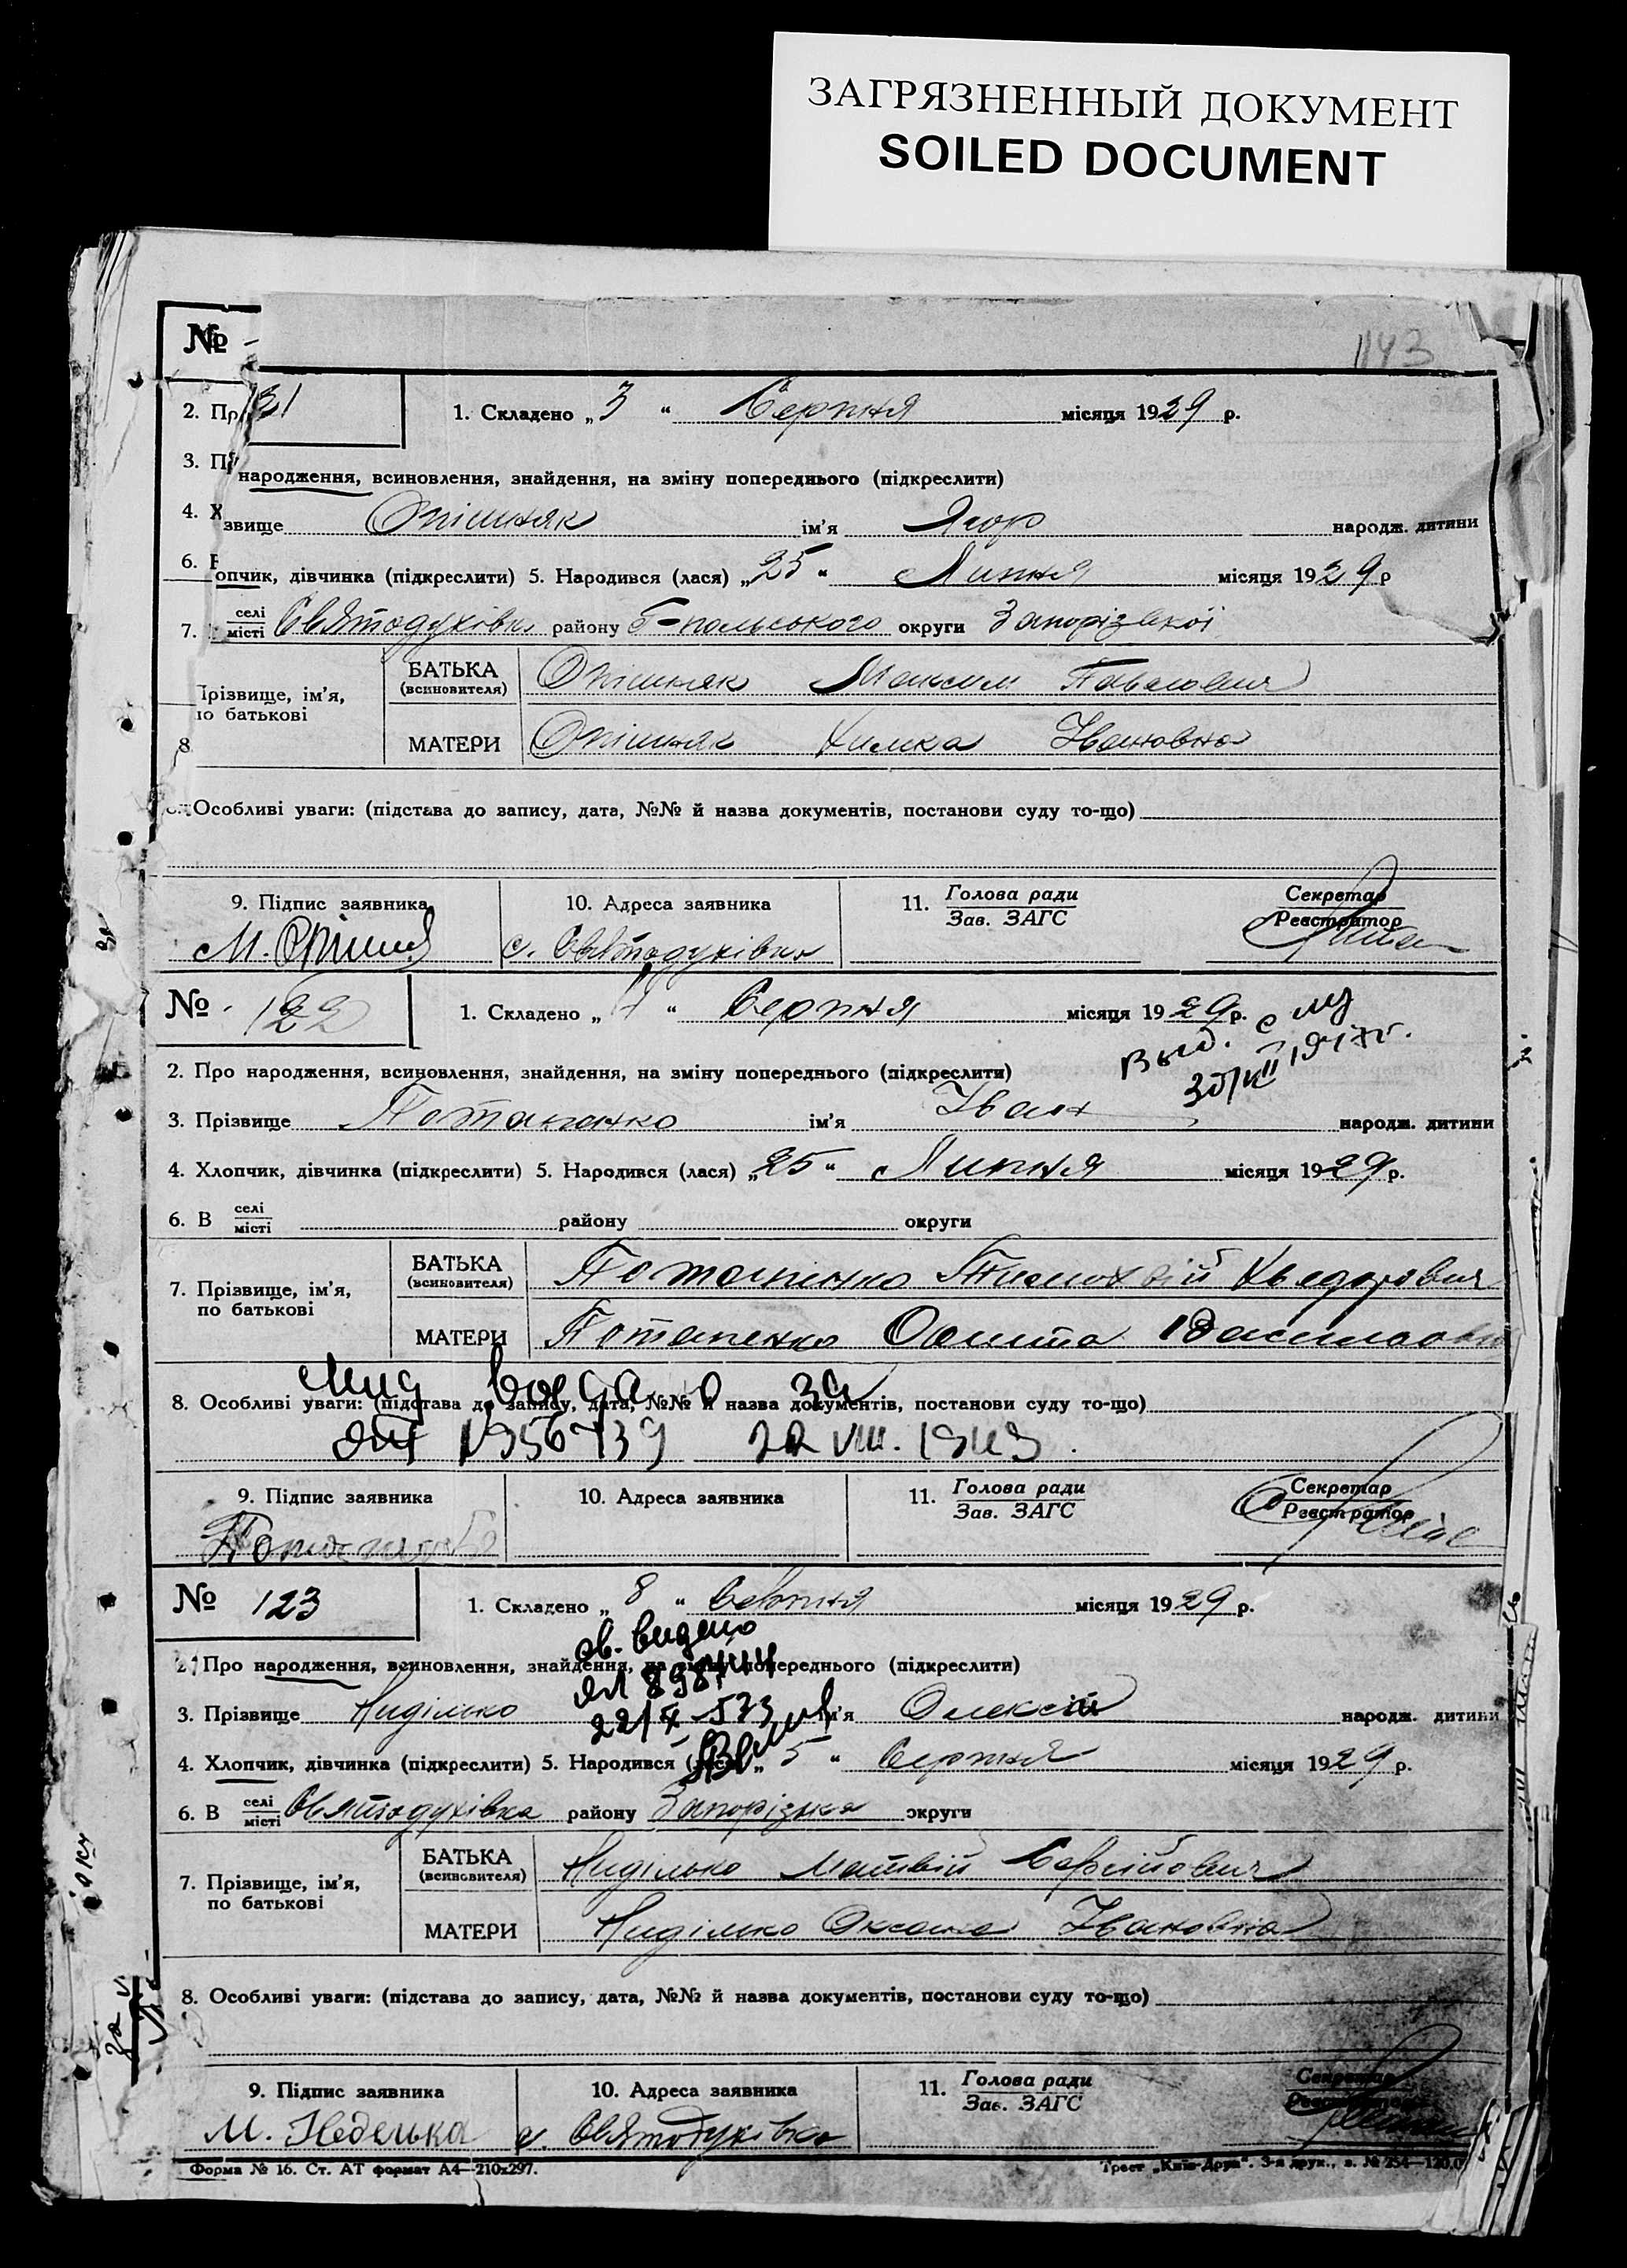 ЗАГРЯЗНЕННЫЙ ДОКУМЕНТ
SOILED DOCUMENT
№
1143
2. Пр 31 1. Складено „3“ Серпня місяця 1929 р.
3. П
народження, всиновлення, знайдення, на зміну попереднього (підкреслити)
4. Х
звище Опішняк ім'я Ягор народж. дитини
6.
опчик, дівчинка (підкреслити) 5. Народився (лася) „25“ Липня місяця 1929 р
7. селі місті Святодухівка району Т-польського округи Запорізької
БАТЬКА (всиновителя) Опішняк Максим Павлович
Прізвище, ім'я, по батькові
8 МАТЕРИ Опішняк Химка Івановна
Особливі уваги: (підстава до запису, дата, №№ й назва документів, постанови суду то-що)
9. Підпис заявника 10. Адреса заявника 11. Голова ради Зав. ЗАГС Секретар Реєстратор
М. Опішн с. Святодухівка
№ 122 1. Складено „4“ Серпня місяця 1929 р.
2. Про народження, всиновлення, знайдення, на зміну попереднього (підкреслити)
3. Прізвище Потапенко ім'я Іван народж. дитини
4. Хлопчик, дівчинка (підкреслити) 5. Народився (лася) „25“ Липня місяця 1929 р.
6. В селі місті району округи
БАТЬКА (всиновителя) Потапенко Тимохвій Хведорович
7. Прізвище, ім'я, по батькові
МАТЕРИ Потапенко
8. Особливі уваги: (підстава до запису, дата, №№ й назва документів, постанови суду то-що)
22 VIII. 1943.
9. Підпис заявника 10. Адреса заявника 11. Голова ради Зав. ЗАГС Секретар Реєстратор
№ 123 1. Складено „8“ Серпня місяця 1929 р.
св. видано
2. Про народження, всиновлення, знайдення, на зміну попереднього (підкреслити)
3. Прізвище Ниділько ім'я Олексій народж. дитини
4. Хлопчик, дівчинка (підкреслити) 5. Народився (лася) „5“ Серпня місяця 1929 р.
6. В селі місті Святодухівка району Запорізька округи
БАТЬКА (всиновителя) Ниділько Матвій Сергійович
7. Прізвище, ім'я, по батькові
МАТЕРИ Ниділько Оксана Івановна
8. Особливі уваги: (підстава до запису, дата, №№ й назва документів, постанови суду то-що)
9. Підпис заявника 10. Адреса заявника 11. Голова ради Зав. ЗАГС Секретар Реєстратор
М. Неделька с. Святодухівка
Форма № 16. Ст. АТ формат А4—210х297. Трест „Київ-Друк“. 3-я друк., з. № 254—120.0